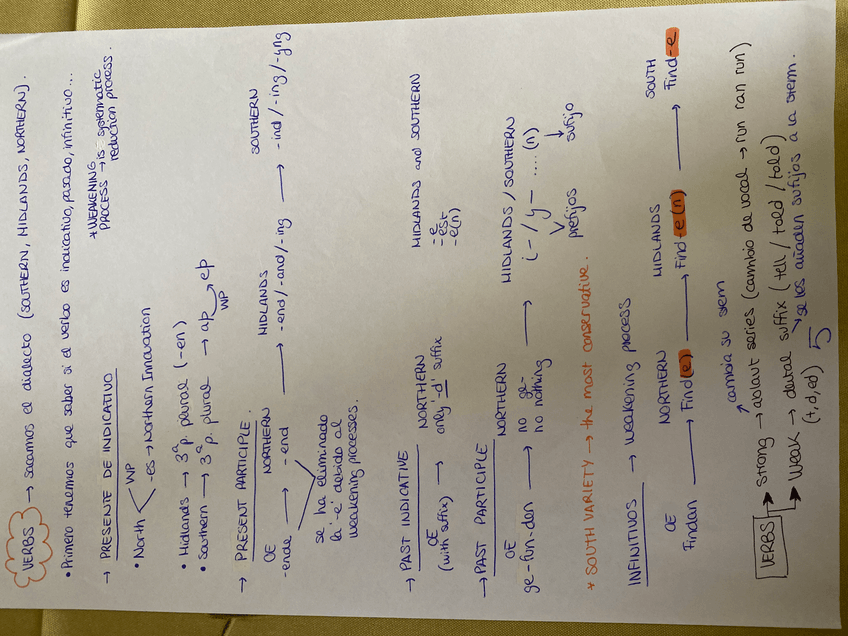 VERBS → sacamos el dialecto (SOUTHERN, MIDLANDS, NORTHERN).
• Primero tenemos que saber si el verbo es indicativo, pasado, infinitivo...
→ PRESENTE DE INDICATIVO
* WEAKENING PROCESS → is systematic reduction process.
• North < WP
-es → Northern Innovation
• Midlands → 3ª p. plural (-en)
• Southern → 3ª p. plural → aþ → eþ
WP
→ PRESENT PARTICIPLE.
OE NORTHERN MIDLANDS SOUTHERN
-ende → -end → -end/-and/-ing → -ind/-ing/-yng
se ha eliminado
la '-e' debido al
weakening processes.
→ PAST INDICATIVE
OE NORTHERN MIDLANDS and SOUTHERN
(with suffix) → only '-d' suffix
-e
-est
-e(n)
→ PAST PARTICIPLE
OE NORTHERN MIDLANDS/SOUTHERN
ge-fun-den → no ge- → i-/y- .... (n)
no nothing
prefijos sufijo
* SOUTH VARIETY → the most conservative.
INFINITIVOS → weakening process
OE NORTHERN MIDLANDS SOUTH
Findan → Find(e) → Find-e(n) → Find-e
cambia su stem
VERBS → Strong → ablaut series (cambio de vocal → run ran run)
→ Weak → dental suffix (tell/told/told)
(t,d,ed) → se les añaden sufijos a la stem.
5